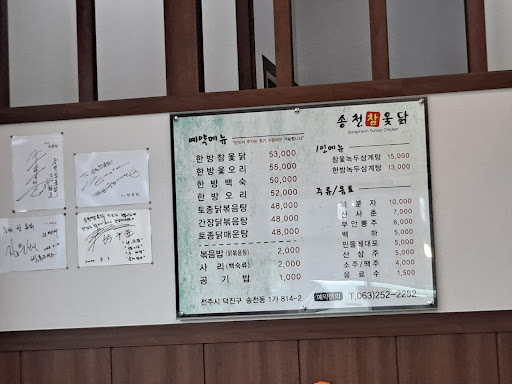 송천 참 옻닭
예약메뉴
한방참옻닭 53,000
한방옻오리 55,000
한방백숙 50,000
한방오리 52,000
토종닭볶음탕 48,000
간장닭볶음탕 48,000
토종닭매운탕 48,000
볶음밥(닭볶음탕) 2,000
사리(백숙류) 2,000
공기밥 1,000
1인메뉴
참옻녹두삼계탕 15,000
한방녹두삼계탕 13,000
주류/음료
복분자 10,000
산사춘 7,000
부안뽕주 6,000
백하 5,000
민들레대포 5,000
산삼주 5,000
소주/맥주 4,000
음료수 1,500
전주시 덕진구 송천동 1가 814-2
예약문의 T.063)252-2252